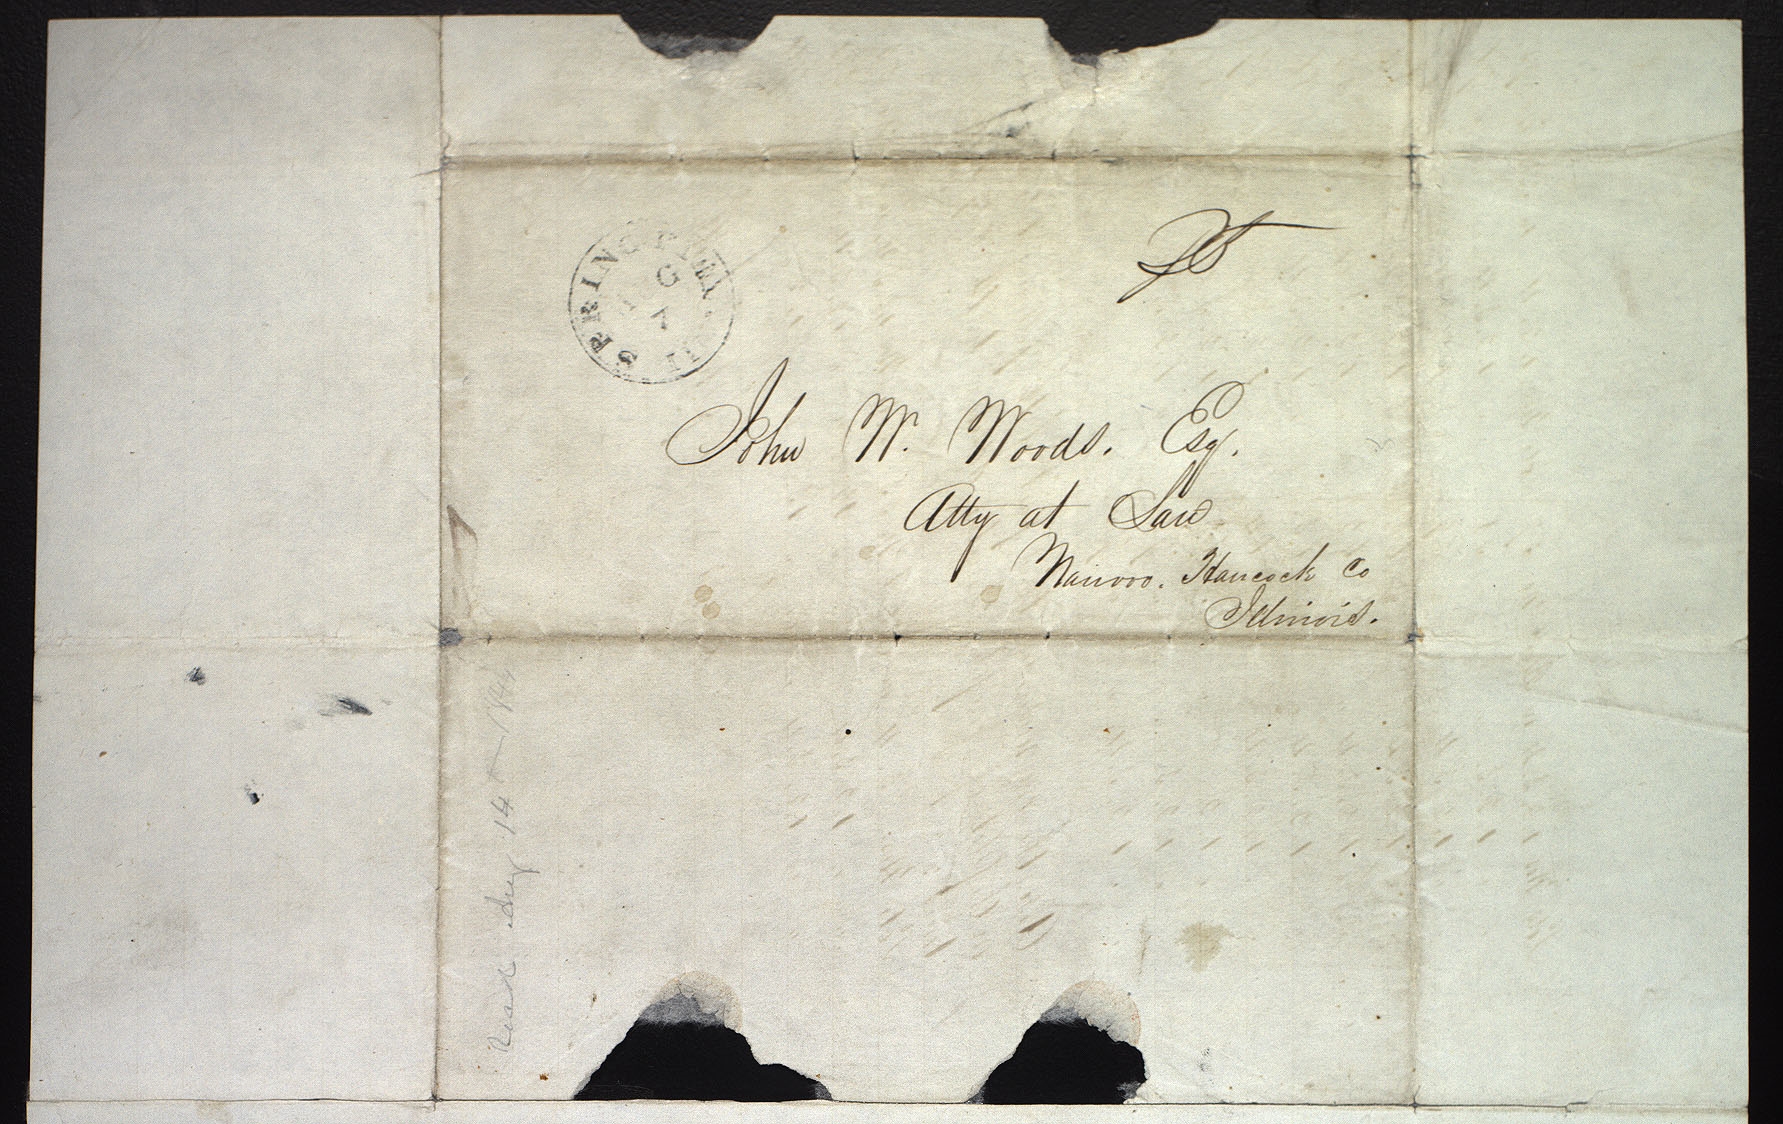 SPRINGFIEL
Ill
G
7
John W. Woods. Esq.
Atty at Law
Nauvoo. Hancock Co
Illinois.
Aug 14